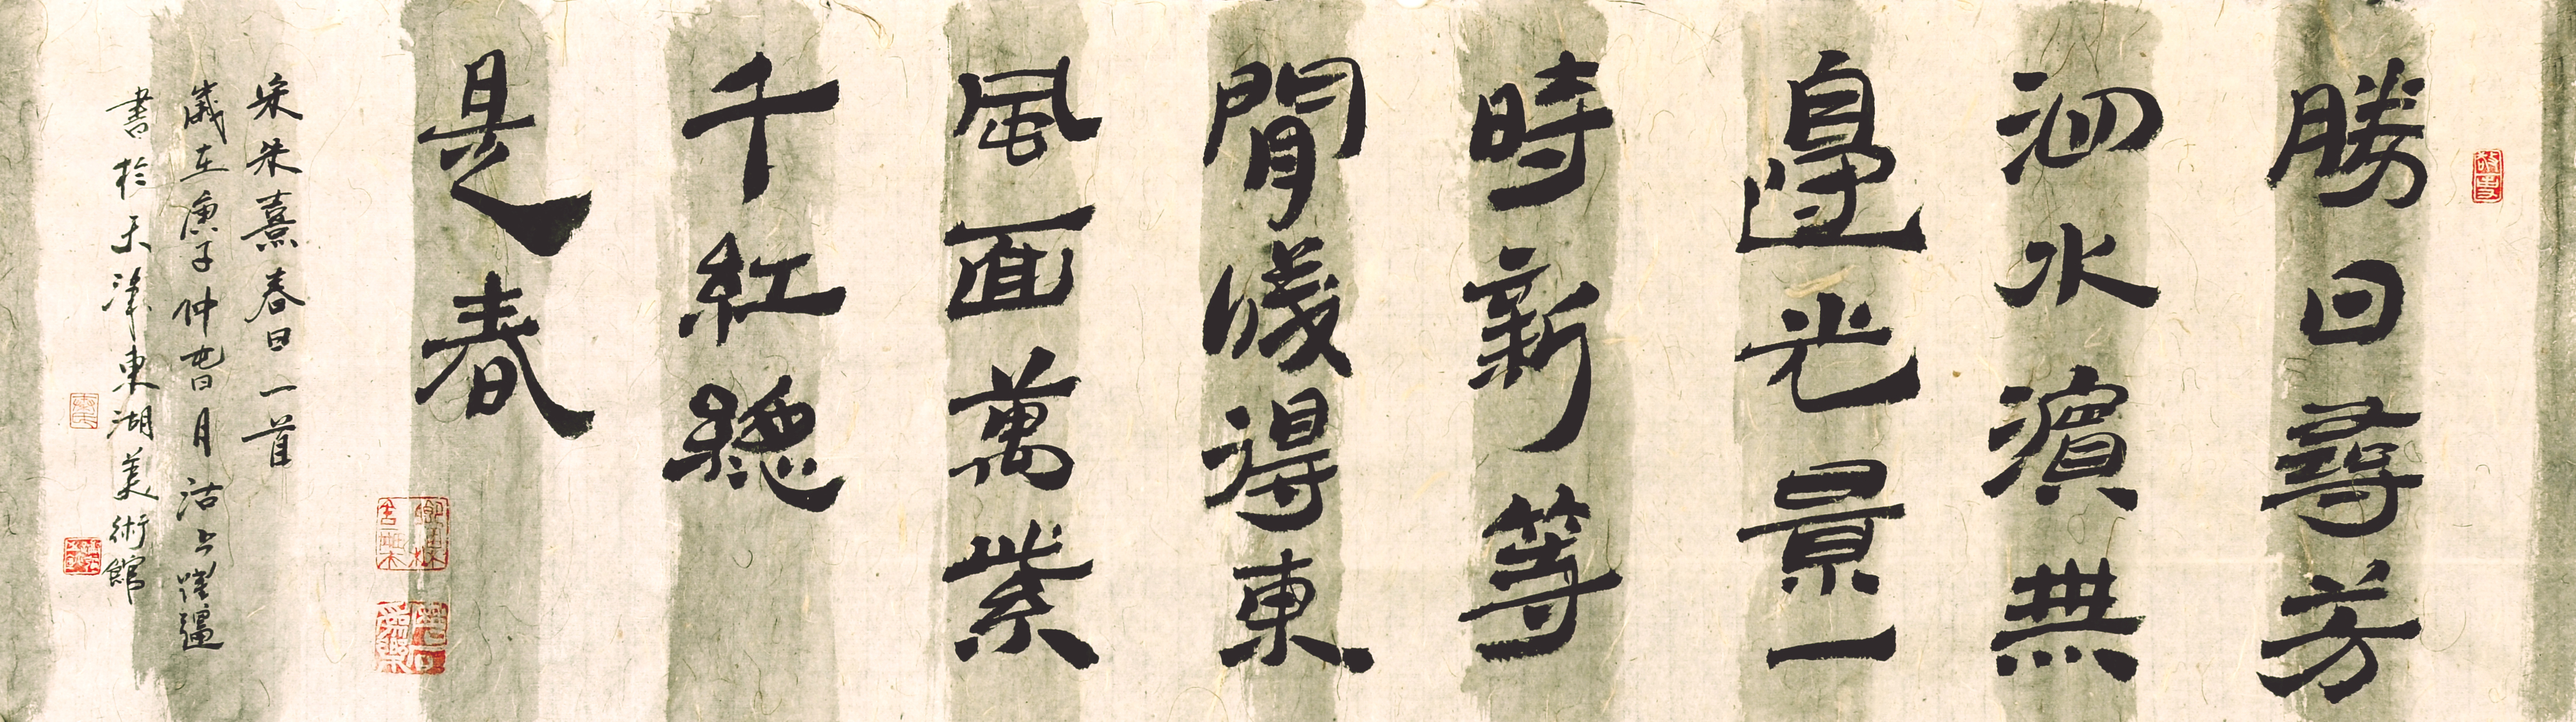 勝日尋芳
泗水濱無
邊光景一
時新等
閒識得東
風面萬紫
千紅總
是春
宋朱熹春日一首
歲在庚子仲旾月沽上
書於天津東湖美術館